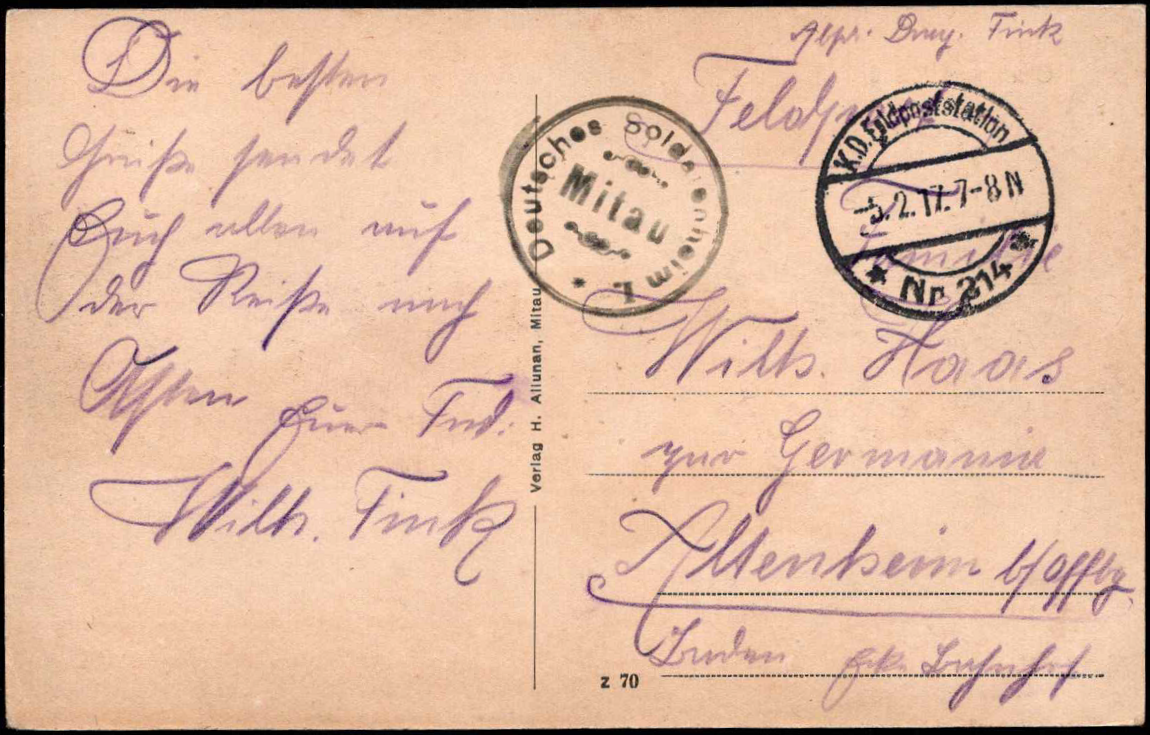 Die besten
Grüße sendet
Euch allen auf
der Reise nach
Osten Euer Frd.
Wilh. Fink
Deutsches Soldatenheim I.
Mitau
Verlag H. Allunan, Mitau
Fink
Feldpost
K.D. Feldpoststation
-5.2.17. 7-8 N
* Nr 214 *
Familie
Wilh. Haas
zur Germania
Altenheim b/Offbg.
Baden Bahnhof
z 70